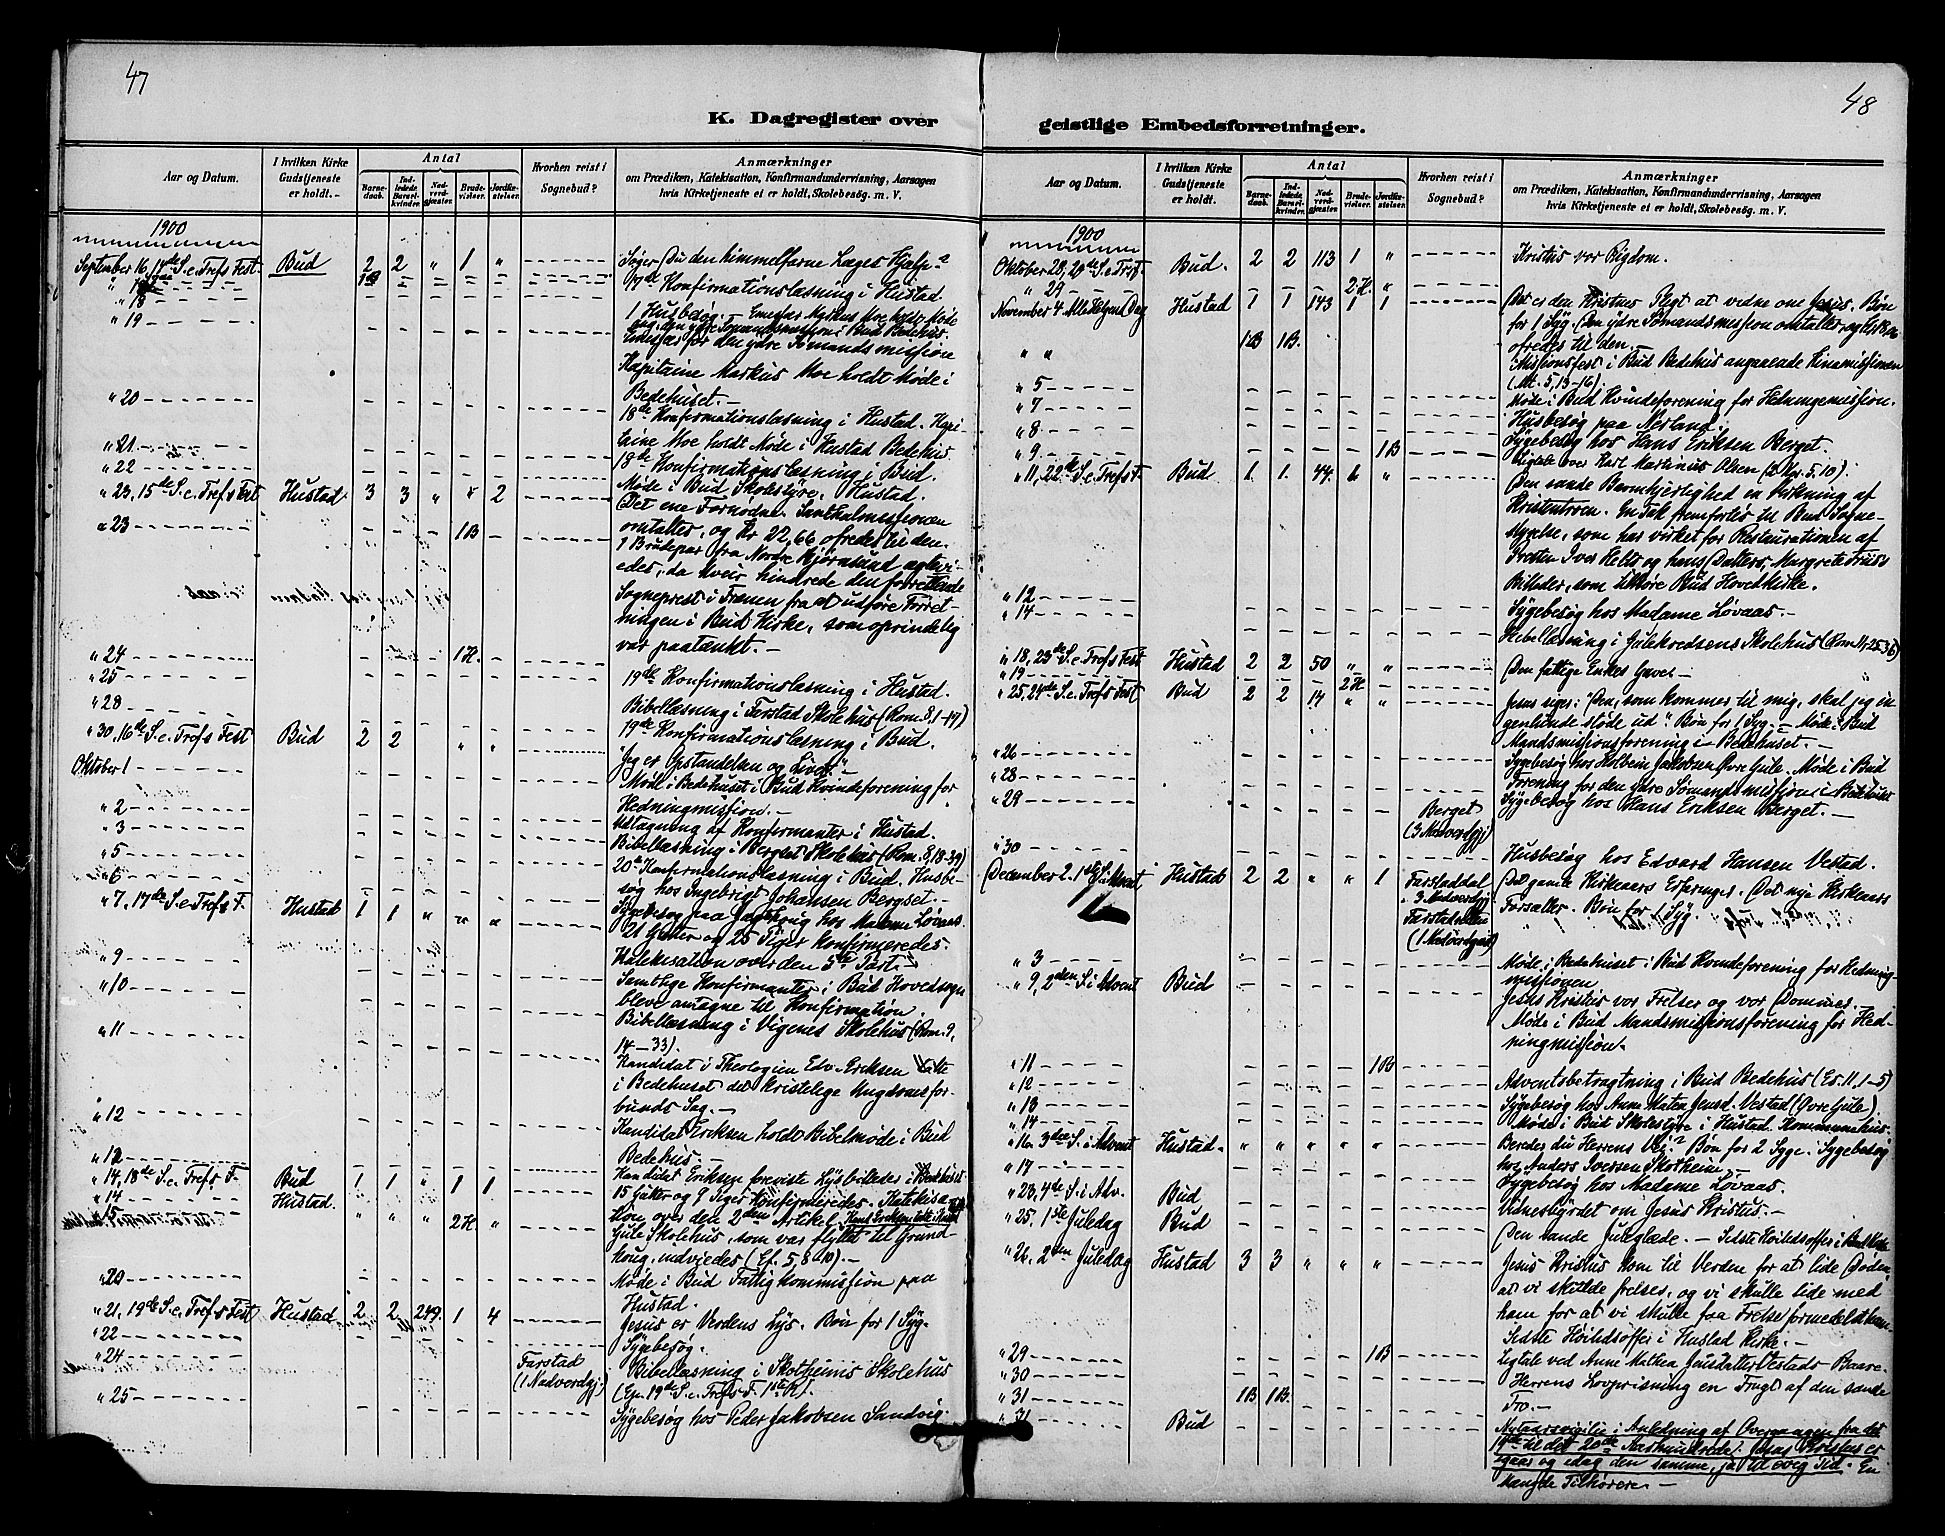 47
K. Dagregister over
Aar og Datum.
I hvilken Kirke Gudstjeneste er holdt.
Antal
Barnedaab.
Indledede Barselkvinder.
Nadverdgjæster.
Brudevielser.
Jordfæstelser.
Hvorhen reist i Sognebud?
Anmærkninger
om Prædiken, Katekisation, Konfirmandundervisning, Aarsagen
hvis Kirketjeneste ei er holdt, Skolebesøg. m. V.
1900
September 16, S. e. Trefs Fest. Bud 2 2 " 1 "
Søger Du den himmelfarne Læges Hjælp?
17de Konfirmationslæsning i Hustad.
" 18
" 19
1 Husbesøg.
den ydre Sømandsmission
Kapitaine Markus Moe holdt Møde i
Bedehuset.
" 20
18de Konfirmationslæsning i Hustad. Kapi-
taine Moe holdt Møde i Hustad Bedehus
" 21
18de Konfirmationslæsning i Bud.
" 22
Møde i Bud Skolestyre, Hustad.
" 23, 15de S. e. Trefs Fest Hustad. 3 3 " " 2
Det ene Fornødne. Santhalmissionen
omtaltes, og Kr 22,66 ofredes til den.
" 23 1 B
1 Brudepar fra Nordre Bjørnsund
edes, da Veir hindrede den forrettende
Sogneprest i Frænen fra at udføre Forret-
ningen i Bud Kirke, som oprindelig
var paatænkt.
" 24 1 H.
" 25
19de Konfirmationslæsning i Hustad.
" 28
Bibellæsning i Farstad Skolehus (Rom. 8, 1-17)
19de Konfirmationslæsning i Bud.
" 30, 16de S. e. Trefs Fest Bud 2 2 " "
"Jeg er Opstandelsen og Livet."
Oktober 1
Møde i Bedehuset i Bud Kvindeforening for
Hedningmission.
" 2
Udtagning af Konfirmanter i Hustad.
" 3
Bibellæsning i Bergset Skolehus (Rom. 8, 18-39)
" 5
20de Konfirmationslæsning i Bud. Husbe-
søg hos Ingebrigt Johansen Bergset.
" 6
Sygebesøg paa hos Madame Lovaas.
" 7, 17de S. e. Trefs F. Hustad 1 1 " " "
21 Gutter og 25 Piger konfirmeredes.
Katekisation over den 5te Part.
" 9
Samtlige Konfirmanter i Bud Hovedsogn
bleve antagne til Konfirmation.
" 10
Bibellæsning i Vigenes Skolehus (Rom. 9,
14-33).
" 11
Kandidat i Theologien Edv. Eriksen
i Bedehuset det kristelige Ungdomsfor-
bunds Sag.
" 12
Kandidat Eriksen holdt Bibelmøde i Bud
Bedehus.
" 12
Kandidat Eriksen foreviste Lysbilleder i Bedehuset
" 14, 18de S. e. Trefs F. Bud 1 1 " 1 1
15 Gutter og 9 Piger konfirmeredes. Katekisa-
tion over den 2den Artikel.
" 14 Hustad.
" 15 " " " 2 H "
Gule Skolehus, som var flyttet til Grund-
houg, indviedes (Ef. 5, 8-10).
" 20
Møde i Bud Fattigkommission paa
Hustad.
" 21, 19de S. e. Trefs Fest Hustad 2 2 249. 1 4
Jesus er Verdens Lys. Bøn for 1 Syg.
" 22
Sygebesøg.
" 24 Farstad (1 Nadverdgj.)
Bibellæsning i Skotheims Skolehus
(Ep. 19de S. e. Trefs F. 1ste R).
" 25
Sygebesøg hos Peder Jakobsen Sandvig.
48
geistlige Embedsforretninger.
Aar og Datum.
I hvilken Kirke Gudstjeneste er holdt.
Antal
Barnedaab.
Indledede Barselkvinder.
Nadverdgjæster.
Brudevielser.
Jordfæstelser.
Hvorhen reist i Sognebud?
Anmærkninger
om Prædiken, Katekisation, Konfirmandundervisning, Aarsagen
hvis Kirketjeneste ei er holdt, Skolebesøg. m. V.
1900
Oktober 28, 20de S. e. Tref. Bud. 2 2 113 1 "
Kristus vor Rigdom.
" 29 2 H. "
November 4 Alle Helgens Dag Hustad 1 1 143 1 1
Det er den Kristnes Pligt at vidne om Jesus. Bøn
for 1 Syg. Den ydre Sømandsmission omtaltes
ofredes til den.
" " 1 B 1 B.
Missionsfest i Bud Bedehus angaaende Kinamissionen
(Mt. 5, 13-16).
" 5
Møde i Bud Kvindeforening for Hedningemission.
" 7
Husbesøg paa Nerland.
" 8
Sygebesøg hos Hans Eriksen Berget.
" 9 1 B
Ligtale over Karl Martinus Olsen (2 Kor. 5, 10).
" 11, 22de S. e. Trefs F. Bud 1. 1. 44. "
Den sande Barmhjertighed en Virkning af
Kristentroen. En Tak fremførtes til Bud Sogne-
styrelse, som har virket for Restaurationen af
Presten Iver Helts og hans Datters, Margrete Friis's
Billeder, som tilhøre Bud Hovedkirke.
" 12
Sygebesøg hos Madame Lovaas.
" 14
Bibellæsning i Gulekredsens Skolehus (Rom. 11, 25-36)
" 18, 23de S. e. Trefs Fest Hustad 2 2 50 " "
Den fattige Enkes Gave.
" 19 2 H
" 25, 24de S. e. Trefs Fest Bud 2 2 14 " "
Jesus siger: "Den, som kommer til mig, skal jeg in-
genlunde støde ud". Bøn for 1 Syg. Møde i Bud
Mandsmissionsforening i Bedehuset.
" 26
Sygebesøg hos Jakobsen Øvre Gule. Møde i Bud
" 28
Forening for den ydre Sømandsmission i Bedehuset
" 29 Berget (3 Nadverdgj.)
Sygebesøg hos Hans Eriksen Berget.
" 30
Husbesøg hos Edvard Hansen Vestad.
December 2. 1ste S. i Advent Hustad 2 2 " " 1 Farstaddal 3 Nadverdgj.
Det gamle Kirkeaars Erfaringer. Det nye Kirkeaars
Forsætter. Bøn for 1 Syg.
" 3
Møde i Bedehuset i Bud Kvindeforening for Hedning-
missionen
" 9, 2den S. i Advent Bud
Jesus Kristus vor Frelser og vor Dommer.
Møde i Bud Mandsmissionsforening for Hed-
ningmission.
" 11 1 B
" 12
Adventsbetragtning i Bud Bedehus (Es. 11, 1-5)
" 13
Sygebesøg hos Anne Matea Jensd. Vestad (Øvre Gule).
" 14
Møde i Bud Skolestyre i Hustad Kommunehus.
" 16 3die S. i Advent Hustad. " " " " "
Bereder du Herrens Vej? Bøn for 2 Syge. Sygebesøg
hos Anders Iversen Skotheim.
" 17
Sygebesøg hos Madame Lovaas.
" 23, 4de S. i Adv. Bud
Vidnesbyrdet om Jesus Kristus.
" 25. 1ste Juledag Bud
Den sande Juleglæde. Sidste Høitidsoffer i Bud
" 26. 2den Juledag Hustad 3 3 " " "
Jesus Kristus kom til Verden for at lide Døden,
at vi skulde frelses, og vi skulle lide med
ham for at vi skulle faa Frelse formedelst ham.
Sidste Høitidsoffer i Hustad Kirke.
" 29 1 B
Ligtale ved Anne Mathea Jensdatter Vestads Baare.
" 30
Herrens Lovprisning en Frugt af den sande
Tro.
" 31 1 B 1 B.
" 31 Bud
Nytaarsvigilie i Anledning af Overgangen fra det
19de til det 20de Aarhundrede. Jesus Kristus er
igaar og idag den samme, ja til evig Tid. En
Mængde Tilhørere.